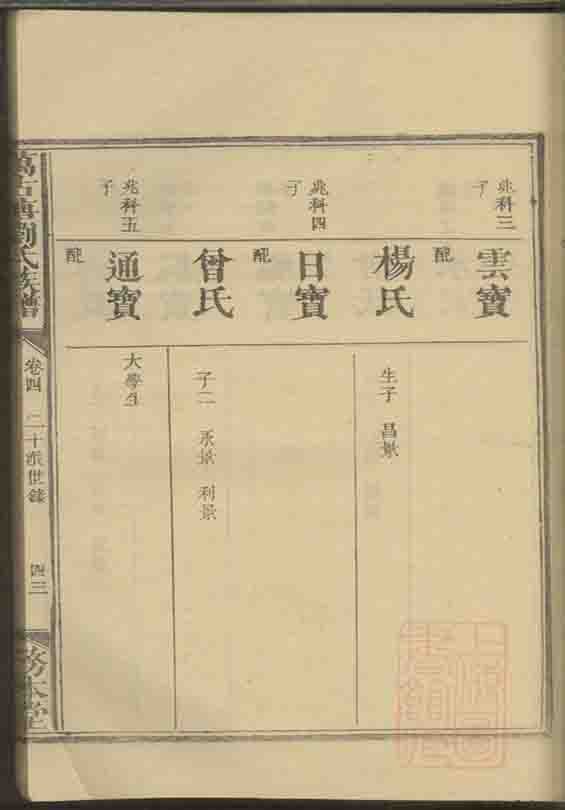 兆科三子
雲寶
配
楊氏
生子 昌景
兆科四子
日寶
配
曾氏
子二 永景 利景
兆科五子
通寶
大學生
配
劉氏族譜
卷四
二十派世錄
四三
務本堂